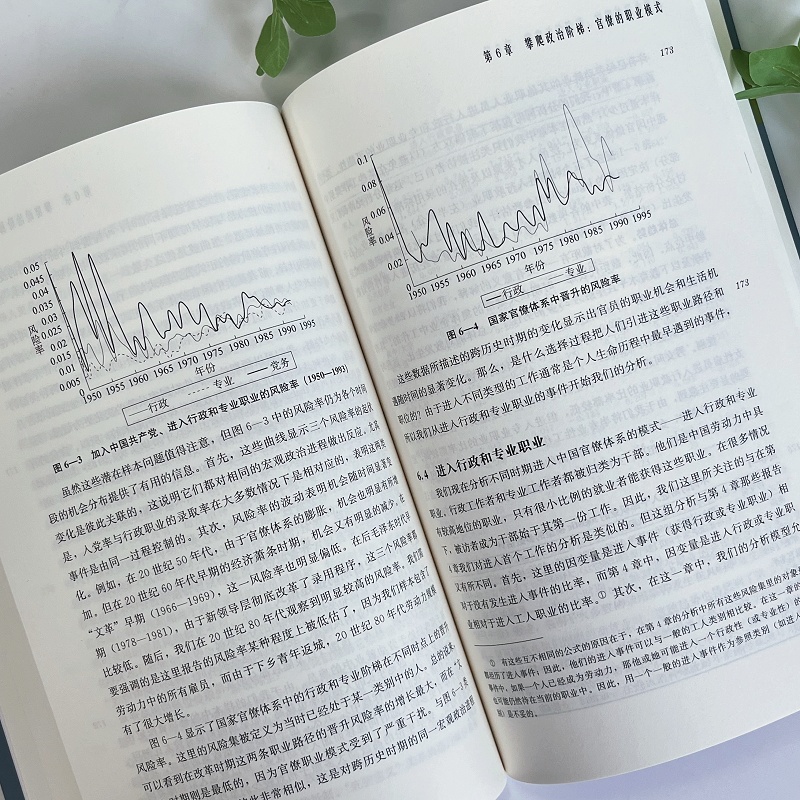 0.05
0.045
0.04
0.035
0.03
0.025
0.02
0.015
0.01
0.005
0
风险率
1950 1955 1960 1965 1970 1975 1980 1985 1990 1995
年份
行政 专业 党务
图6—3 加入中国共产党、进入行政和专业职业的风险率（1950—1993）
虽然这些潜在样本问题值得注意，但图6—3中的风险率仍为各个时间
段的机会分布提供了有用的信息。首先，这些曲线显示三个风险率的起伏
变化是彼此关联的，这说明它们都对相同的宏观政治进程做出反应。尤其
是，入党率与行政职业的录取率在大多数情况下是相对应的，表明这两类
事件是由同一过程控制的。其次，风险率的波动表明机会随时间显著变
化。例如，在20世纪50年代，由于官僚体系的膨胀，机会也明显有所增
加。但在20世纪60年代早期的经济萧条时期，机会又有明显的减少。在
“文革”早期（1966—1969），这一风险率也明显偏低。在后毛泽东时代早
期（1978—1981），由于新领导层彻底改革了录用程序，这三个风险率都
比较低。随后，我们在20世纪80年代观察到明显较高的风险率。我们需
要强调的是这里报告的风险率某种程度上被低估了，因为我们样本包含了
劳动力中的所有雇员，而由于下乡青年返城，20世纪80年代劳动力规模
有了很大增长。
图6—4显示了国家官僚体系中的行政和专业阶梯在不同时点上的晋升
风险率。这里的风险集被定义为当时已经处于某一类别中的人。总的说来，
可以看到在改革时期这两条职业路径的晋升风险率的增长最大，而在“文
时期则是最低的，因为官僚职业模式受到了严重干扰。与图6—3类
此非常相似，这是对跨历史时期的同一宏观政治进程
第6章 攀爬政治阶梯：官僚的职业模式
173
0.1
0.08
0.06
0.04
0.02
0
风险率
1950 1955 1960 1965 1970 1975 1980 1985 1990 1995
年份
行政 专业
图6—4 国家官僚体系中晋升的风险率
173
这些数据所描述的跨历史时期的变化显示出官员的职业机会和生活机
遇随时间的显著变化。那么，是什么选择过程把人们引进这些职业路径和
职位的？由于进入不同类型的工作通常是个人生命历程中最早遇到的事件，
所以我们从进入行政和专业职业的事件开始我们的分析。
6.4 进入行政和专业职业
我们现在分析不同时期进入中国官僚体系的模式——进入行政和专业
职业。行政工作者和专业工作者都被归类为干部。他们是中国劳动力中具
有较高地位的职业，只有很小比例的就业者能获得这些职业。在很多情况
下，被访者成为干部始于其第一份工作。因此，我们这里所关注的与在第
4章我们对进入首个工作的分析是类似的。但这组分析与第4章那些报告
又有所不同。首先，这里的因变量是进入事件（获得行政或专业职业）相
对于没有发生进入事件的比率，而第4章中，因变量是进入行政或专业职
业相对于进入工人职业的比率。① 其次，在这一章中，我们的分析模型允
① 有这些互不相同的公式的原因在于，在第4章的分析中所有这些风险集里的对象
都经历了进入事件；因此，他们的进入事件可以与一般的工人类别相比较。在这一章的
事件中，如果一个人已经成为劳动力，那他或她可能进入一个行政性（或专业性）的
也可能仍然待在当前的职业中。因此，用一个一般的进入事件作为参照类别（如进入
别）是不妥的。